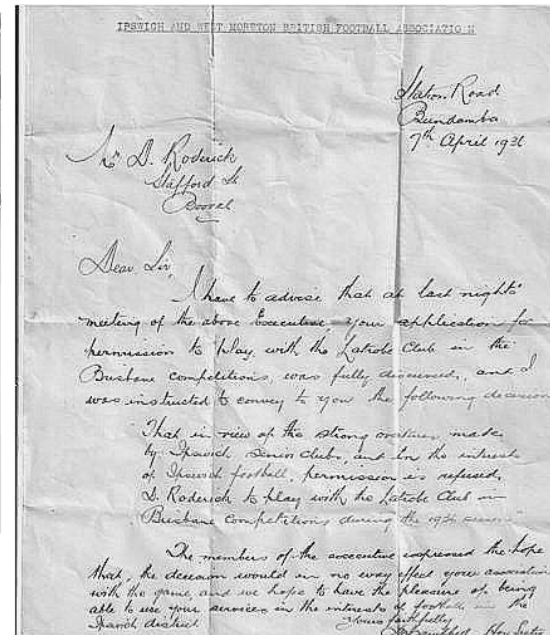 IPSWICH AND WEST MORETON BRITISH FOOTBALL ASSOCIATION
Station Road
Bundamba
7th April 1936
Mr D. Roderick
Stafford St
Booval
Dear Sir,
I have to advise that at last nights'
meeting of the above Executive, your application for
permission to play with the Latrobe Club in the
Brisbane competitions, was fully discussed, and I
was instructed to convey to you the following decision
That in view of the strong made
by Ipswich Senior clubs, and in the interests
of Ipswich football, permission is refused,
D. Roderick to play with the Latrobe Club in
Brisbane Competitions during the 1936 season
The members of the executive expressed the hope
that, the decision would in no way effect your association
with the game, and we hope to have the pleasure of being
able to use your services in the interests of football in the
Ipswich district.
Yours faithfully
Hon. Secty